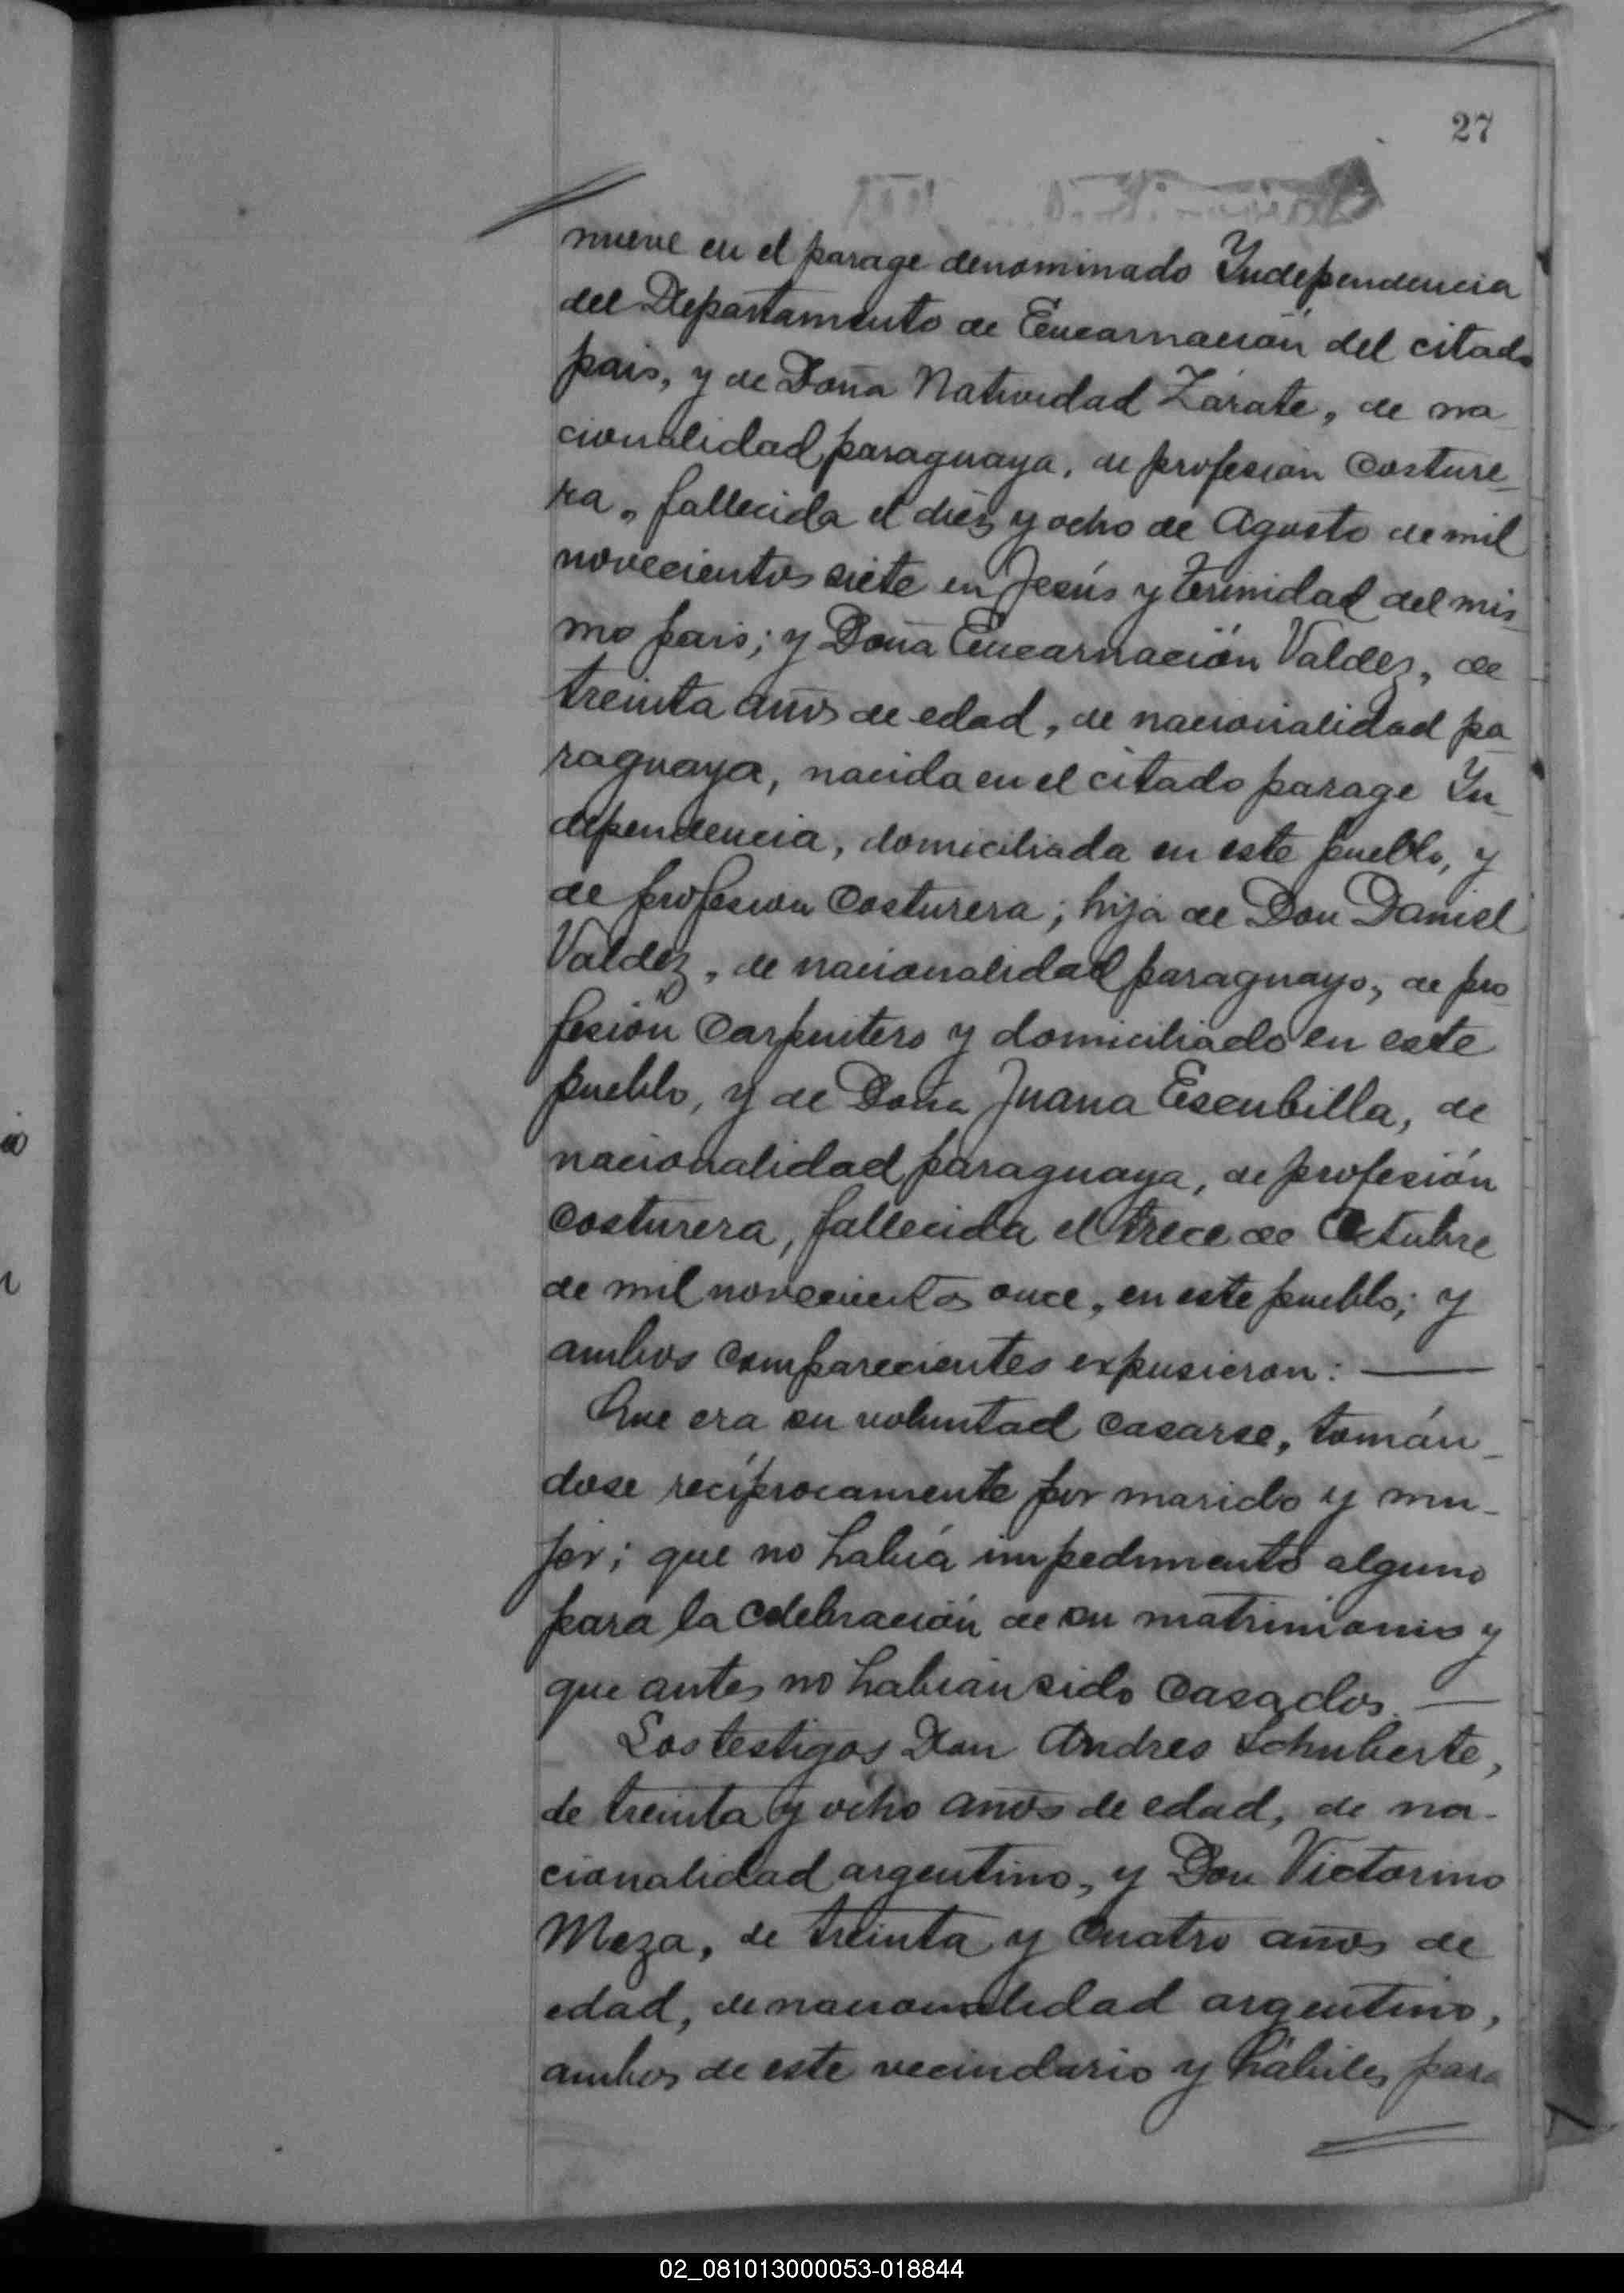 27
nueve en el parage denominado Yndependencia
del Departamento de Encarnación del citado
pais, y de Doña Natividad Zárate, de na
cionalidad paraguaya, de profesion costure-
ra, fallecida el diéz y ocho de Agosto de mil
novecientos siete en Jesús y Trinidad del mis-
mo pais; y Doña Encarnación Valdez, de
treinta años de edad, de nacionalidad pa-
raguaya, nacida en el citado parage Yn-
dependencia, domiciliada en este pueblo, y
de profesion costurera; hija de Don Daniel
Valdez, de nacionalidad paraguayo, de pro-
fesión carpintero y domiciliado en este
pueblo, y de Doña Juana Escubilla, de
nacionalidad paraguaya, de profesión
costurera, fallecida el trece de Octubre
de mil novecientos once, en este pueblo; y
ambos comparecientes expusieron: —
Que era su voluntad casarse, tomán-
dose recíprocamente por marido y mu-
jer; que no había impedimento alguno
para la celebración de su matrimonio y
que antes no habian sido casados. —
Los testigos Don Andres Schuberte,
de treinta y ocho años de edad, de na-
cionalidad argentino, y Don Victorino
Meza, de treinta y cuatro años de
edad, de nacionalidad argentino,
ambos de este vecindario y hábiles para
02_081013000053-018844